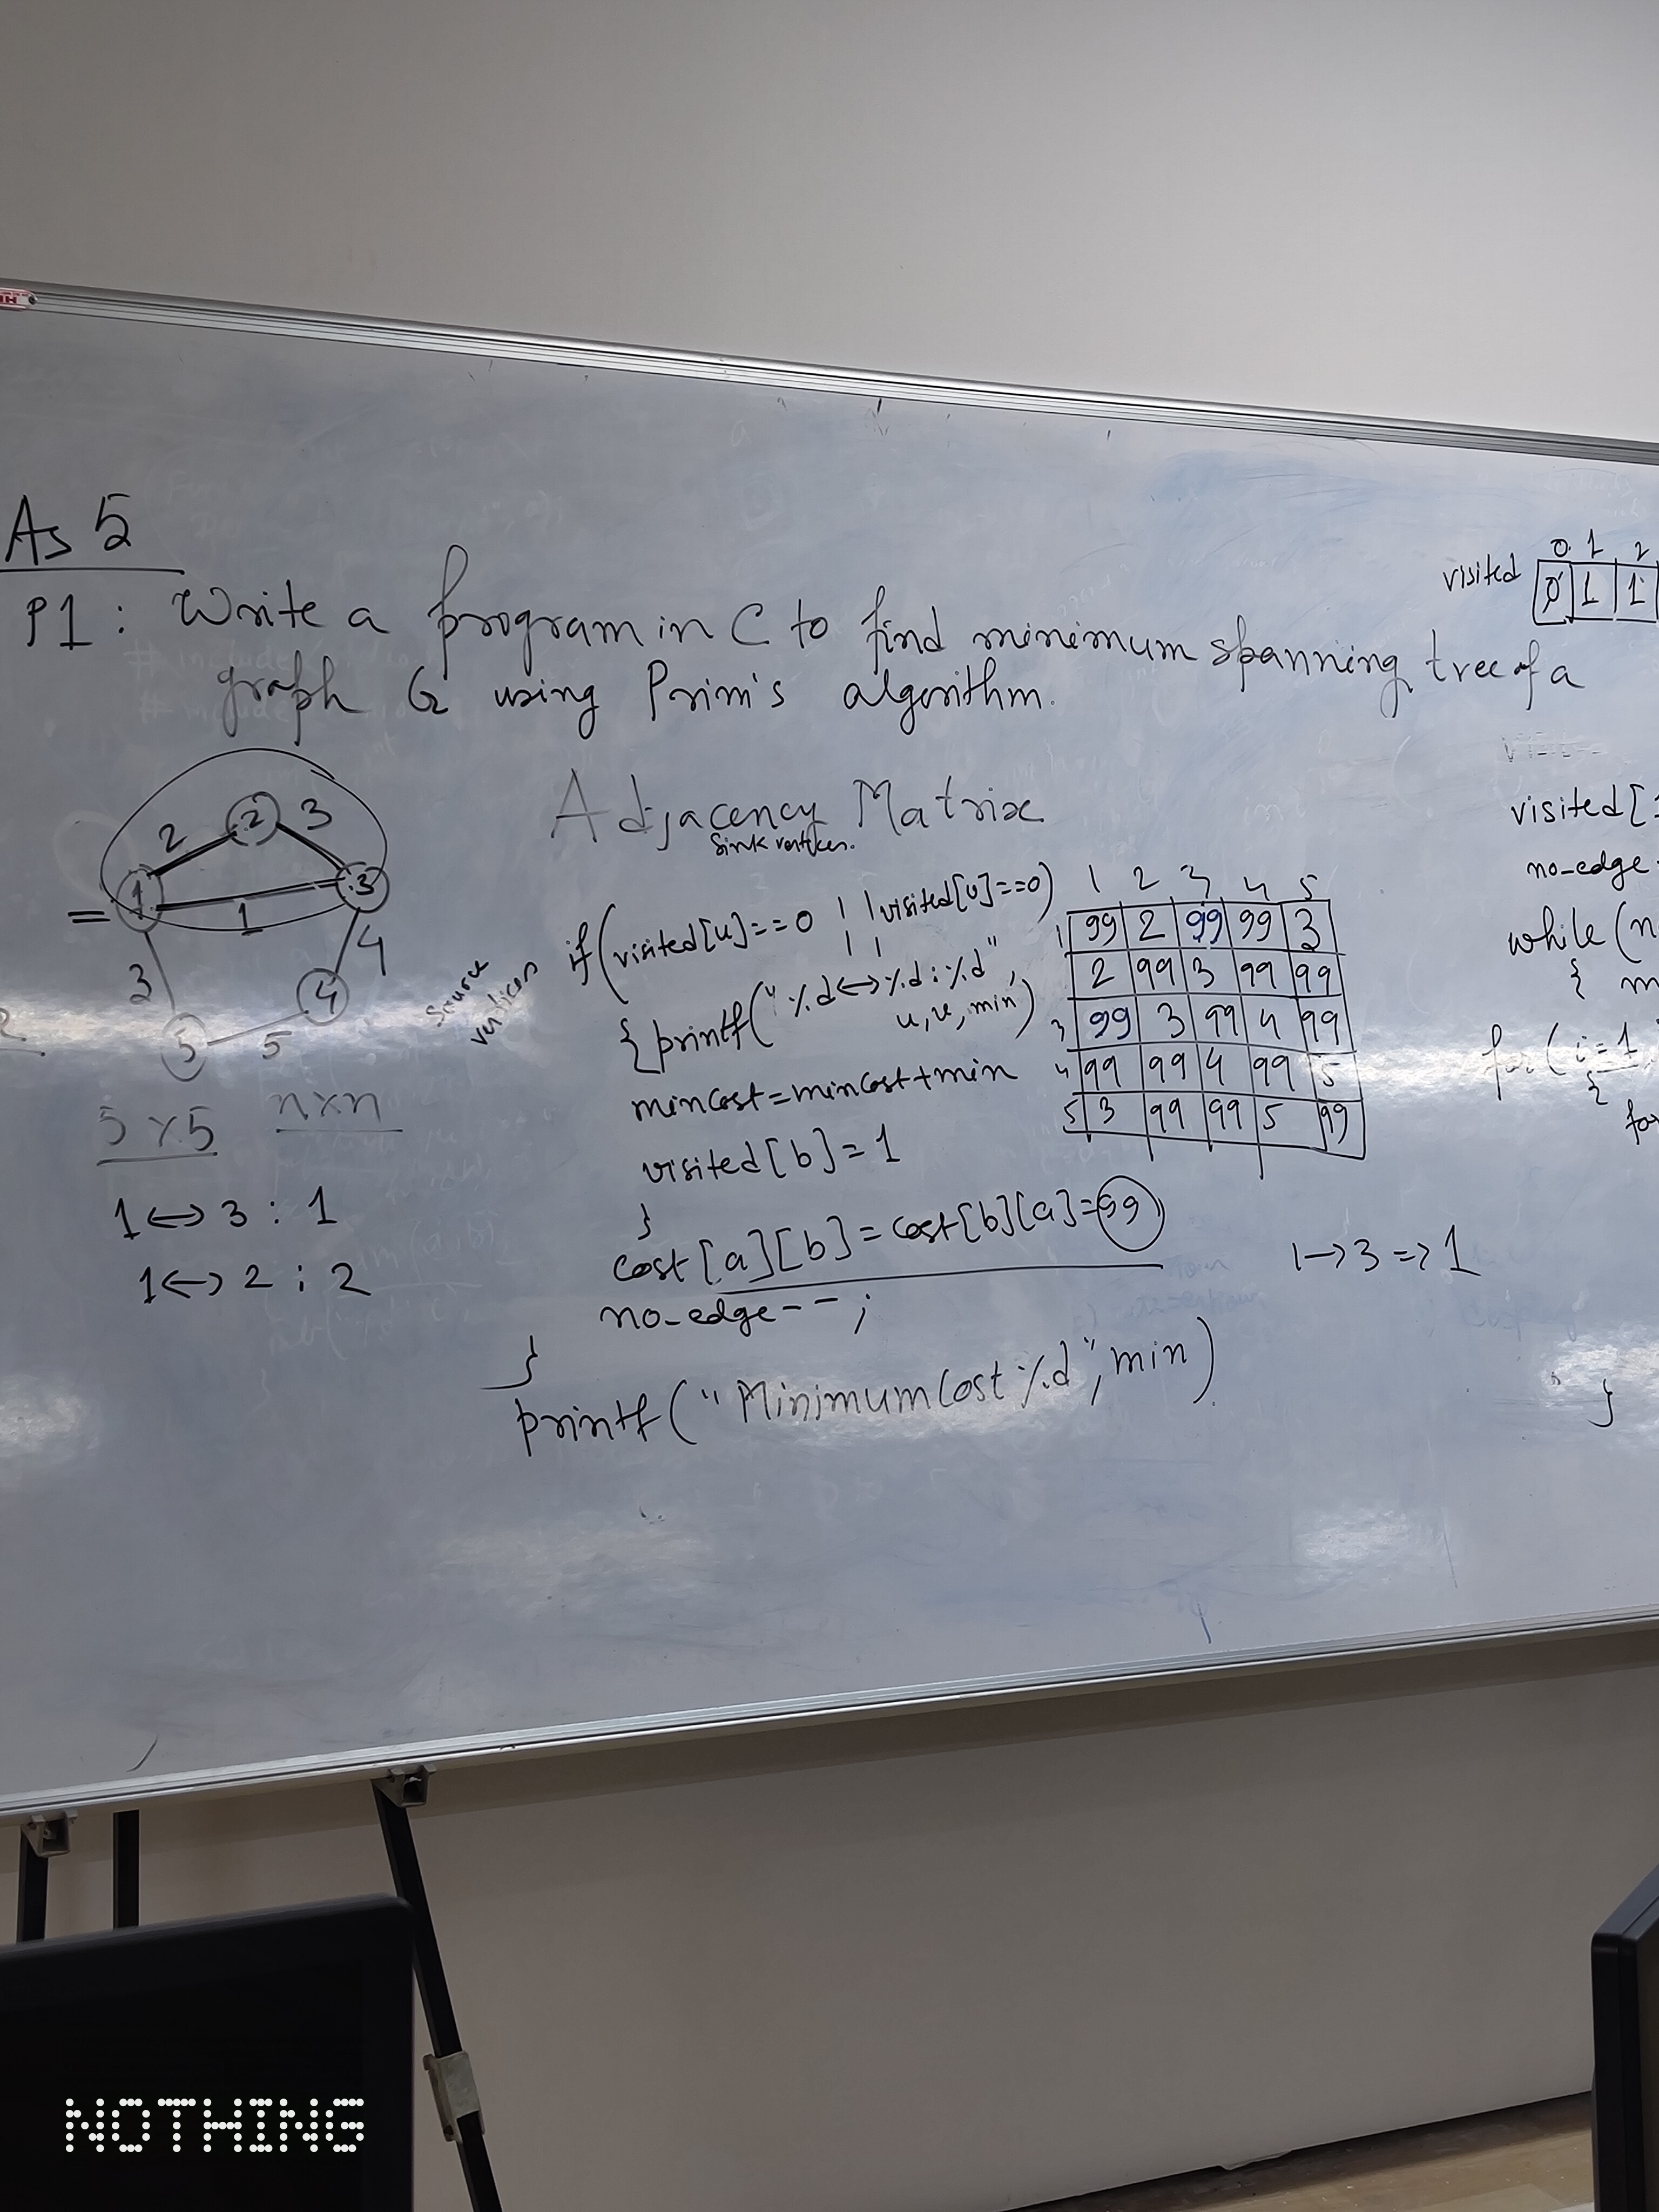 As 5
P1: Write a program in C to find minimum spanning tree of a
graph G using Prim's algorithm.
visited
0 1 2
0 1 1
Adjacency Matrix
Sink vertices.
2 2 3
1 1 3
3 4
5 5 4
5x5 nxn
1<->3 : 1
1<->2 : 2
Source
vertices
if(visited[u]==0 || visited[v]==0)
{printf("%d<->%d:%d",
u,v,min)
mincost=mincost+min
visited[b]=1
}
cost[a][b]=cost[b][a]=99
no_edge--;
}
printf("Minimum Cost %d",min)
1 2 3 4 5
1 99 2 99 99 3
2 99 3 99 99
3 99 3 99 4 99
4 99 99 4 99 5
5 3 99 99 5 99
1->3=>1
visited[1
no_edge
while(n
{ m
for(i=1
{
for
}
NOTHING